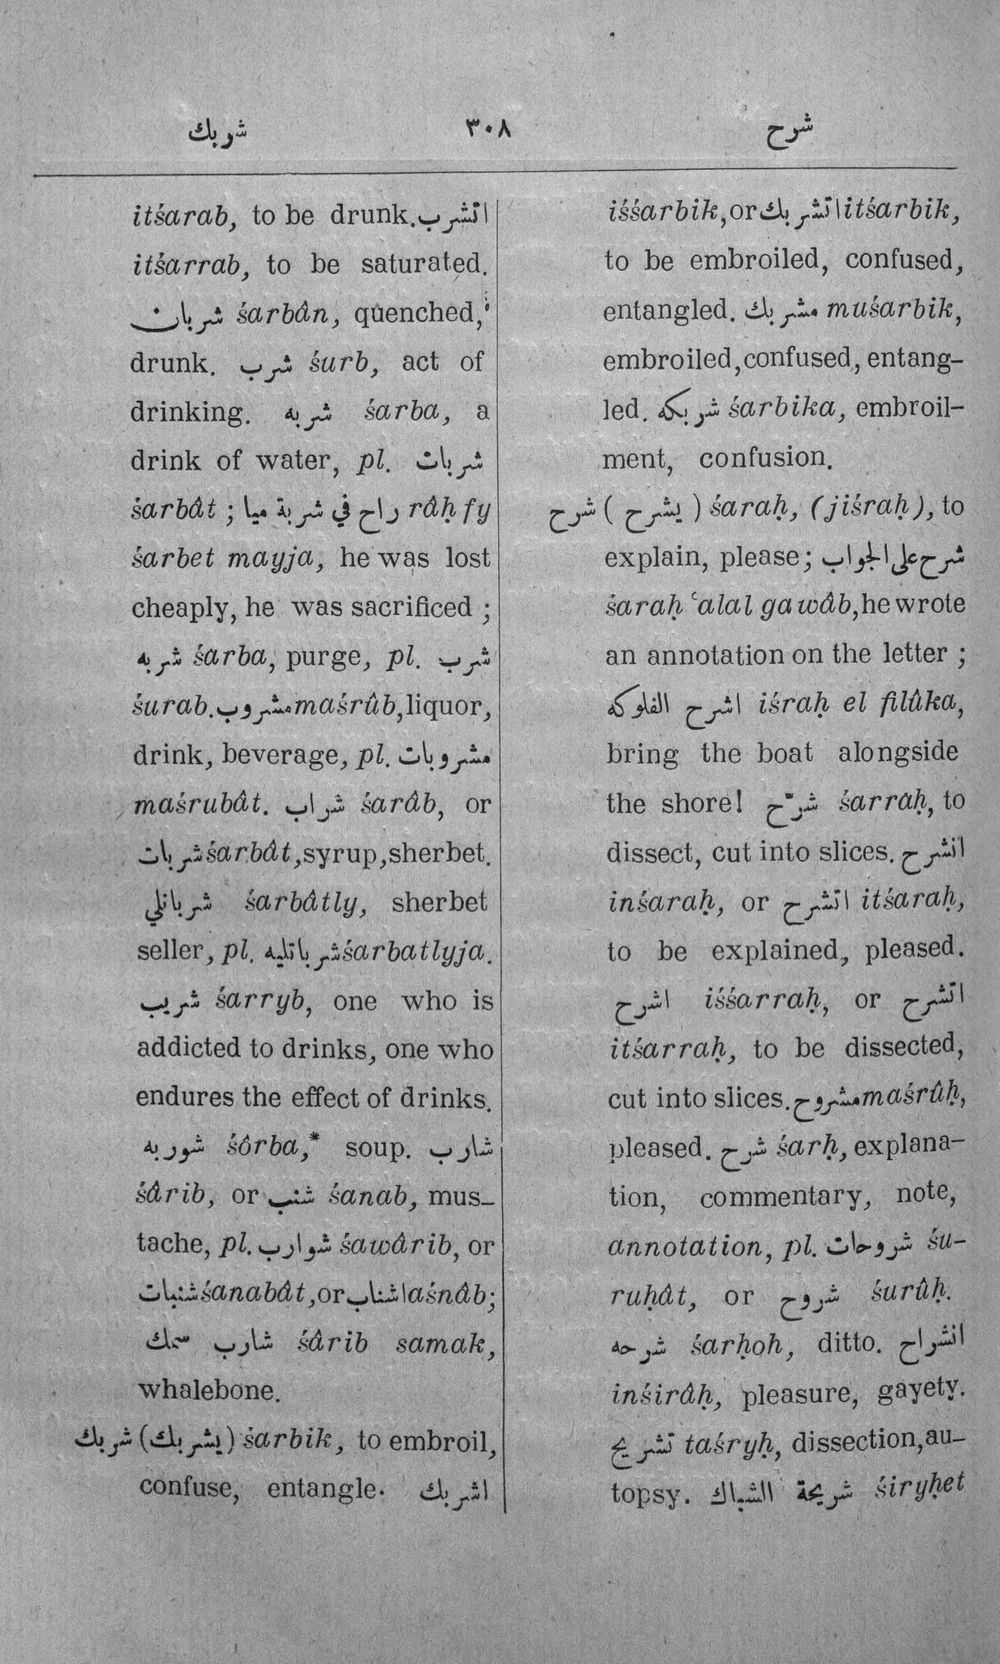 شربك ٣٠٨ شرح
itśarab, to be drunk. اتشرب
itśarrab, to be saturated.
شربان śarbân, quenched,
drunk. شرب śurb, act of
drinking. شربه śarba, a
drink of water, pl. شربات
śarbât ; راح في شربة ميا râḥ fy
śarbet mayja, he was lost
cheaply, he was sacrificed ;
شربه śarba, purge, pl. شرب
śurab. مشروب maśrûb, liquor,
drink, beverage, pl. مشروبات
maśrubât. شراب śarâb, or
شربات śarbât, syrup, sherbet.
شرباتلي śarbâtly, sherbet
seller, pl. شرباتليه śarbatlyja.
شريب śarryb, one who is
addicted to drinks, one who
endures the effect of drinks.
شوربه śôrba,* soup. شارب
śârib, or شنب śanab, mus-
tache, pl. شوارب śawârib, or
شنبات śanabât, or اشناب aśnâb;
شارب سمك śârib samak,
whalebone.
شربك (يشربك) śarbik, to embroil,
confuse, entangle. اشربك
iśśarbik, or اتشربك itśarbik,
to be embroiled, confused,
entangled. مشربك muśarbik,
embroiled, confused, entang-
led. شربكه śarbika, embroil-
ment, confusion.
شرح ( يشرح ) śaraḥ, (jiśraḥ), to
explain, please; شرح على الجواب
śaraḥ ʿalal gawâb, he wrote
an annotation on the letter ;
اشرح الفلوكه iśraḥ el filûka,
bring the boat alongside
the shore! شرّح śarraḥ, to
dissect, cut into slices. انشرح
inśaraḥ, or اتشرح itśaraḥ,
to be explained, pleased.
اشرح iśśarraḥ, or اتشرح
itśarraḥ, to be dissected,
cut into slices. مشروح maśrûḥ,
pleased. شرح śarḥ, explana-
tion, commentary, note,
annotation, pl. شروحات śu-
ruḥât, or شروح śurûḥ.
شرحه śarḥoh, ditto. انشراح
inśirâḥ, pleasure, gayety.
تشريح taśryḥ, dissection, au-
topsy. شريحة الشباك śiryḥet